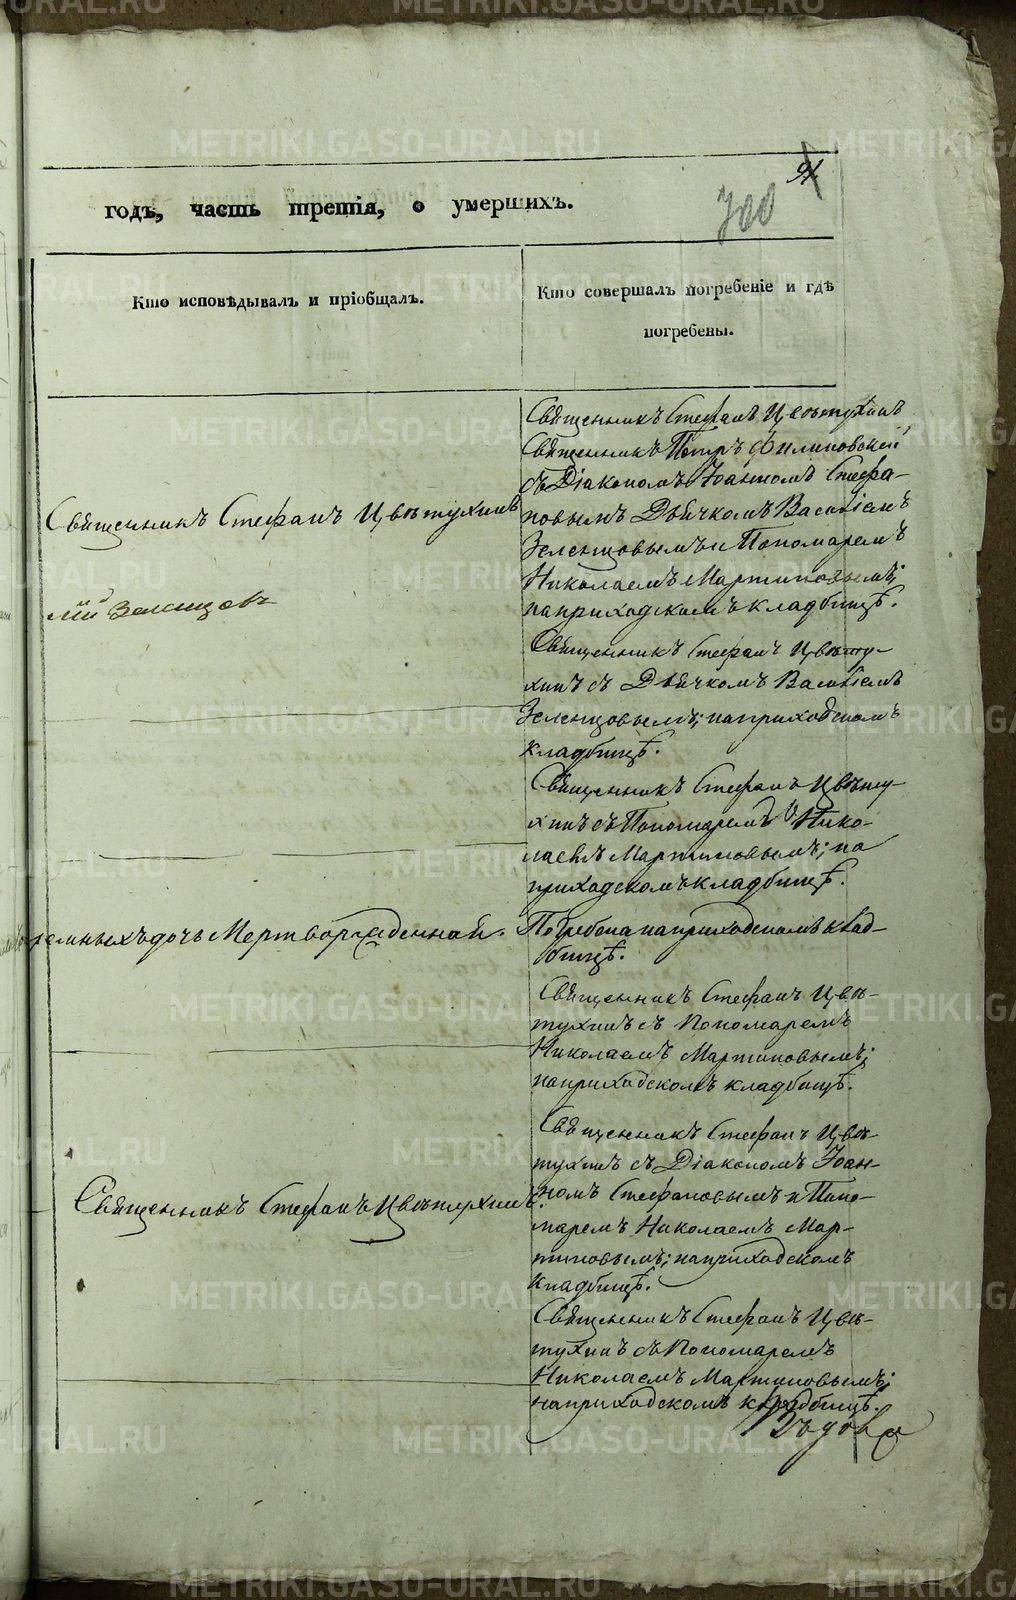 91
700
годъ, часть третія, о умершихъ.
Кто исповѣдывалъ и пріобщалъ.
Кто совершалъ погребеніе и гдѣ
погребены.
Священникъ Стефанъ Цвѣтухинъ
лій Зеленцовъ
дочь Мертворожденная.
Священникъ Стефанъ Цвѣтухинъ.
Священникъ Стефанъ Цвѣтухинъ
Священникъ Петръ Филиповскій
съ Діакономъ Іоанномъ Стефа-
новымъ Дьячкомъ Василіемъ
Зеленцовымъ и Пономаремъ
Николаемъ Мартиновымъ;
на приходскомъ кладбищѣ.
Священникъ Стефанъ Цвѣту-
хинъ съ Дьячкомъ Василіемъ
Зеленцовымъ; на приходскомъ
кладбищѣ.
Священникъ Стефанъ Цвѣту-
хинъ съ Пономаремъ Нико-
лаемъ Мартиновымъ; на
приходскомъ кладбищѣ.
Погребена на приходскомъ клад-
бищѣ.
Священникъ Стефанъ Цвѣ-
тухинъ съ Пономаремъ
Николаемъ Мартиновымъ;
на приходскомъ кладбищѣ.
Священникъ Стефанъ Цвѣ-
тухинъ съ Діакономъ Іоан-
номъ Стефановымъ и Поно-
маремъ Николаемъ Мар-
тиновымъ; на приходскомъ
кладбищѣ.
Священникъ Стефанъ Цвѣ-
тухинъ съ Пономаремъ
Николаемъ Мартиновымъ;
на приходскомъ кладбищѣ.
METRIKI.GASO-URAL.RU